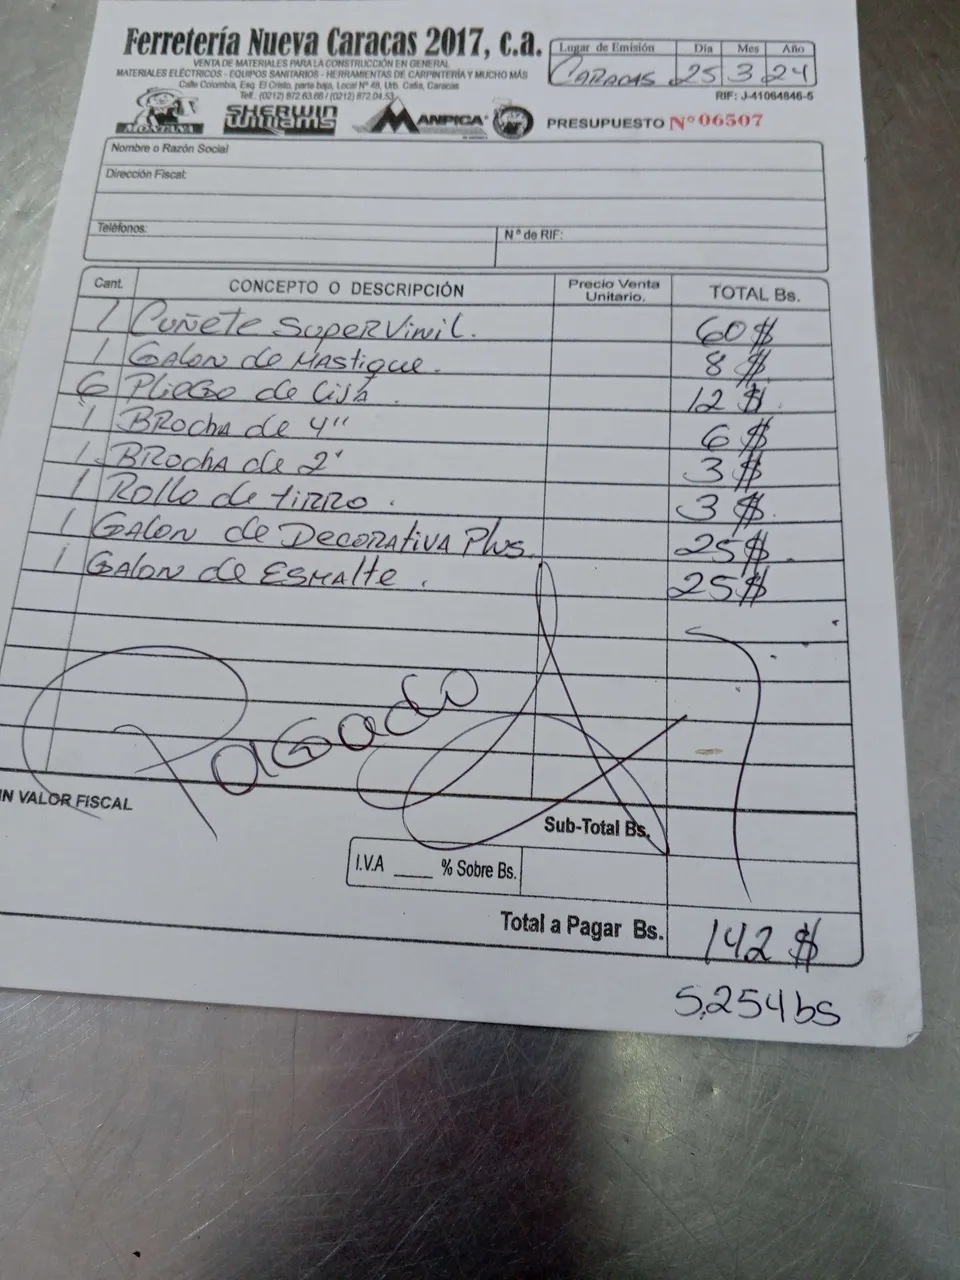 Ferretería Nueva Caracas 2017, c.a.
VENTA DE MATERIALES PARA LA CONSTRUCCIÓN EN GENERAL
MATERIALES ELÉCTRICOS - EQUIPOS SANITARIOS - HERRAMIENTAS DE CARPINTERÍA Y MUCHO MÁS
Calle Colombia, Esq. El Cristo, parte baja, Local Nº 48, Urb. Catia, Caracas
Telf.: (0212) 872.63.66 / (0212) 872.04.53
Lugar de Emisión Día Mes Año
CARACAS 25 3 24
RIF: J-41064846-5
MONTANA SHERWIN WILLIAMS MANPICA
PRESUPUESTO Nº 06507
Nombre o Razón Social
Dirección Fiscal:
Teléfonos: Nº de RIF:
Cant. CONCEPTO O DESCRIPCIÓN Precio Venta Unitario. TOTAL Bs.
1 Cuñete SuperVinil. 60 $
1 Galon de Mastique. 8 $
6 Pliego de Lija. 12 $
1 Brocha de 4" 6 $
1 Brocha de 2' 3 $
1 Rollo de tirro. 3 $
1 Galon de Decorativa Plus. 25 $
1 Galon de Esmalte. 25 $
Pagado
IN VALOR FISCAL
Sub-Total Bs.
I.V.A ____ % Sobre Bs.
Total a Pagar Bs. 142 $
5,254 bs